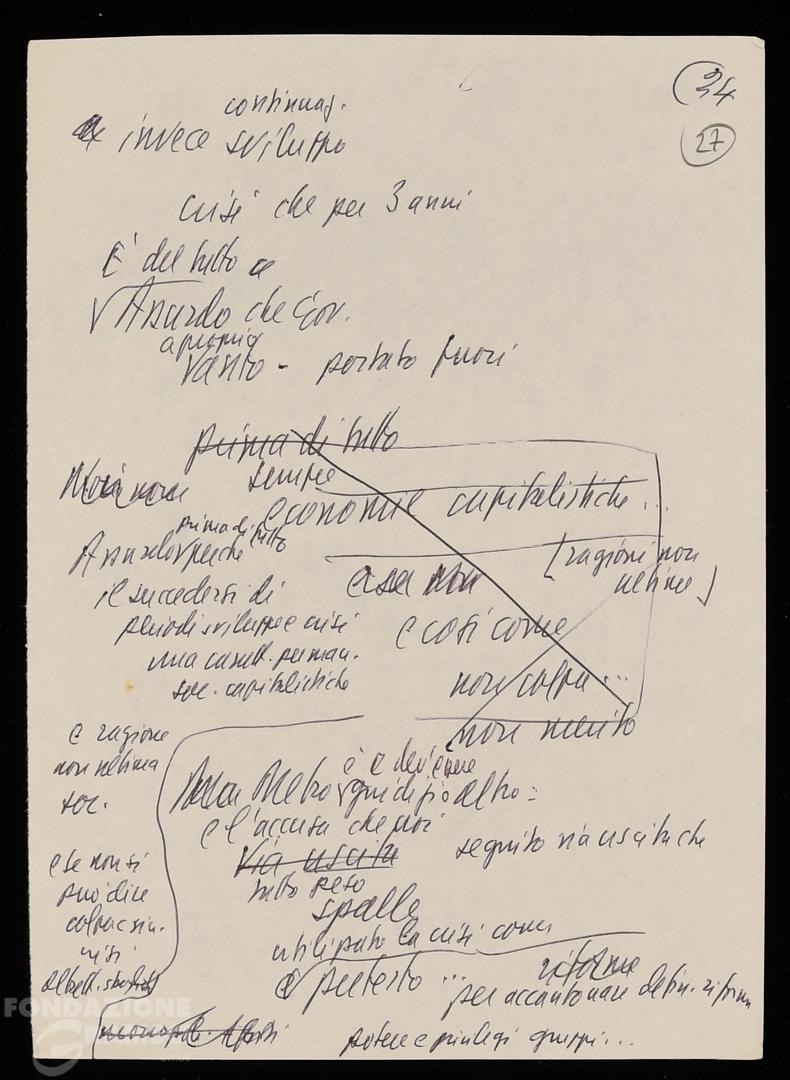 24
27
continuaz.
invece sviluppo
crisi che per 3 anni
È del tutto
Assurdo che Gov.
a proprio
vanto - portato fuori
prima di tutto
sempre
economie capitalistiche...
prima di tutto
Assurdo perché
[ragioni non
ultime]
il succedersi di
periodi sviluppo e crisi
una caratt. perman.
soc. capitalistiche
e così come
non colpa...
non merito
e ragione
non ultima
soc.
è e dev'essere
altro:
e l'accusa che noi
via uscita
seguito via uscita che
tutto peso
spalle
e se non si
può dire
colpa
crisi
utilizzato la crisi come
pretesto...
riforme
per accantonare
potere e privilegi gruppi...
FONDAZIONE